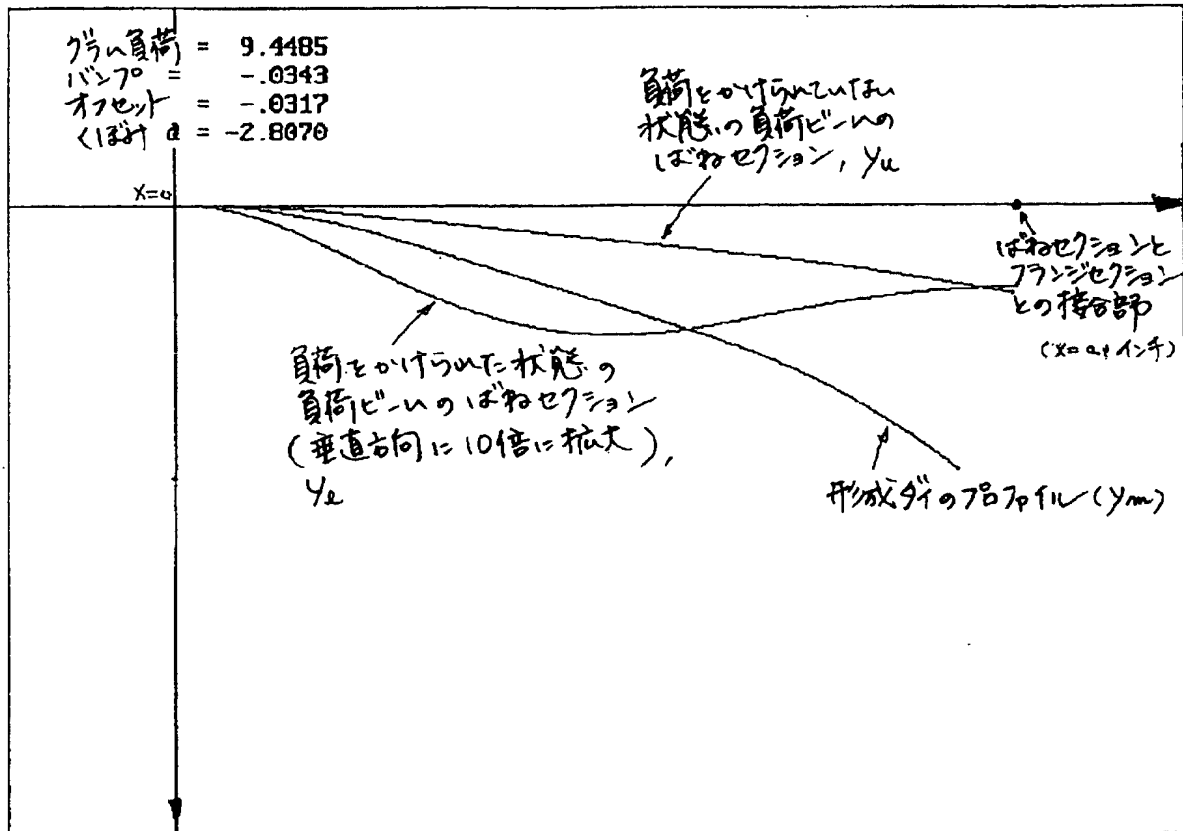 グラム負荷 = 9.4485
バンプ = -.0343
オフセット = -.0317
くぼみ d = -2.8070
x=0
負荷をかけられていない
状態の負荷ビームの
ばねセクション, yu
ばねセクションと
フランジセクション
との接合部
インチ)
負荷をかけられた状態の
負荷ビームのばねセクション
(垂直方向に10倍に拡大),
yl
形成ダイのプロファイル(ym)